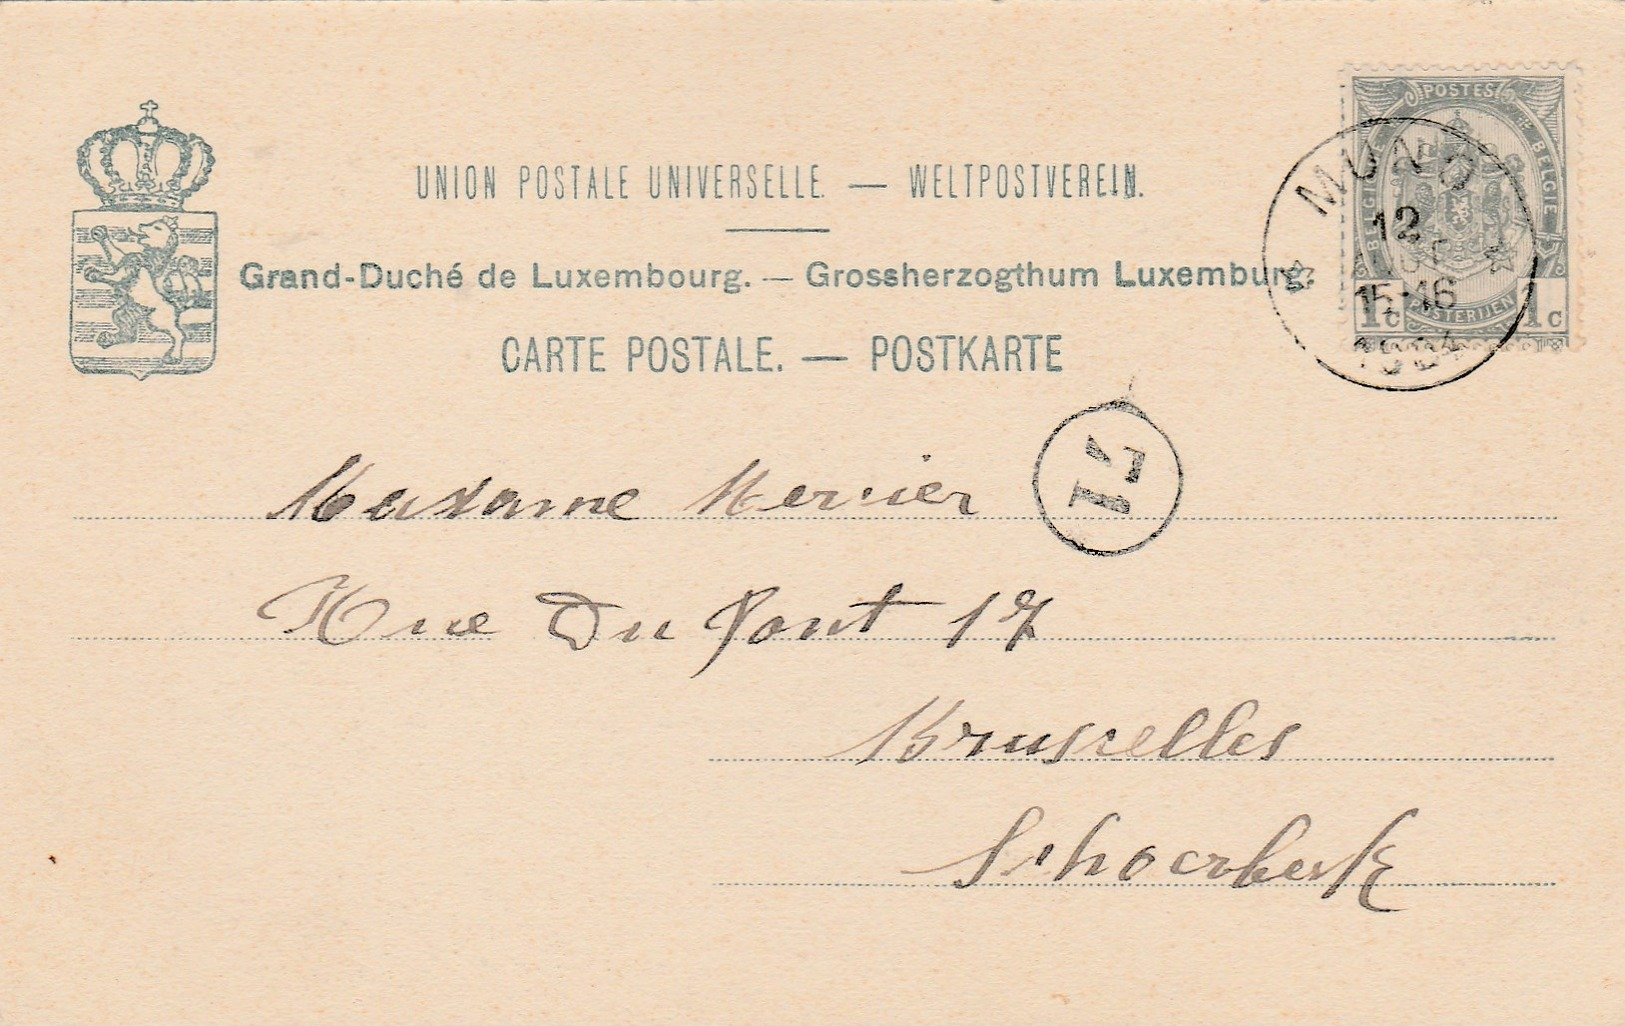 UNION POSTALE UNIVERSELLE. — WELTPOSTVEREIN.
Grand-Duché de Luxembourg. — Grossherzogthum Luxemburg.
CARTE POSTALE. — POSTKARTE
POSTES
BELGIQUE
BELGIE
POSTERIJEN
1c
1c
MUNO
12
AOUT
15-16
1904
Madame Mercier
Rue Du Pont 17
Bruxelles
Schoerbeek